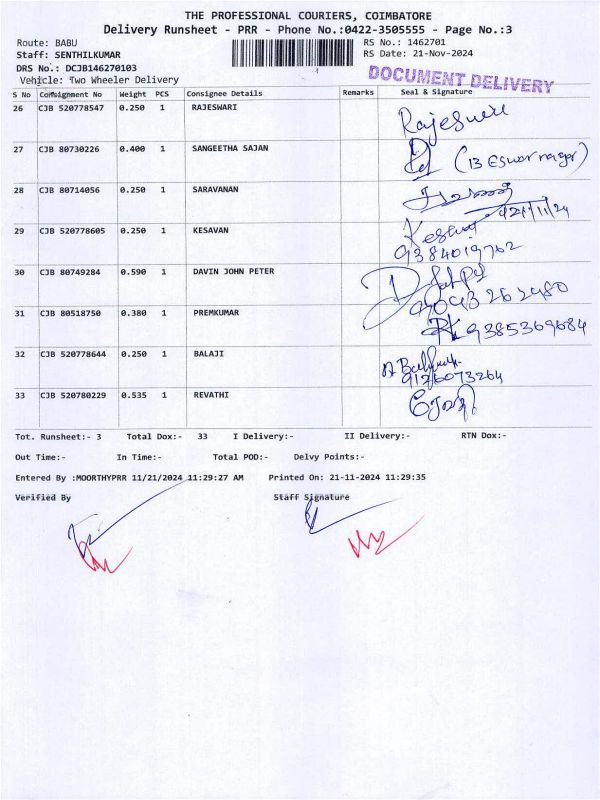 THE PROFESSIONAL COURIERS, COIMBATORE
Delivery Runsheet - PRR - Phone No.:0422-3505555 - Page No.:3
Route: BABU RS No.: 1462701
Staff: SENTHILKUMAR RS Date: 21-Nov-2024
DRS No.: DCJB146270103
Vehicle: Two Wheeler Delivery DOCUMENT DELIVERY
S No Consignment No Weight PCS Consignee Details Remarks Seal & Signature
26 CJB 520778547 0.250 1 RAJESWARI Rajeswari
27 CJB 80730226 0.400 1 SANGEETHA SAJAN (13 Eswar nagar)
28 CJB 80714056 0.250 1 SARAVANAN சரவணன்
21/11/24
29 CJB 520778605 0.250 1 KESAVAN Kesavan
9384019762
30 CJB 80749284 0.590 1 DAVIN JOHN PETER
31 CJB 80518750 0.380 1 PREMKUMAR 9385369684
32 CJB 520778644 0.250 1 BALAJI
9126073264
33 CJB 520780229 0.535 1 REVATHI ரேவதி
Tot. Runsheet:- 3 Total Dox:- 33 I Delivery:- II Delivery:- RTN Dox:-
Out Time:- In Time:- Total POD:- Delvy Points:-
Entered By :MOORTHYPRR 11/21/2024 11:29:27 AM Printed On: 21-11-2024 11:29:35
Verified By Staff Signature